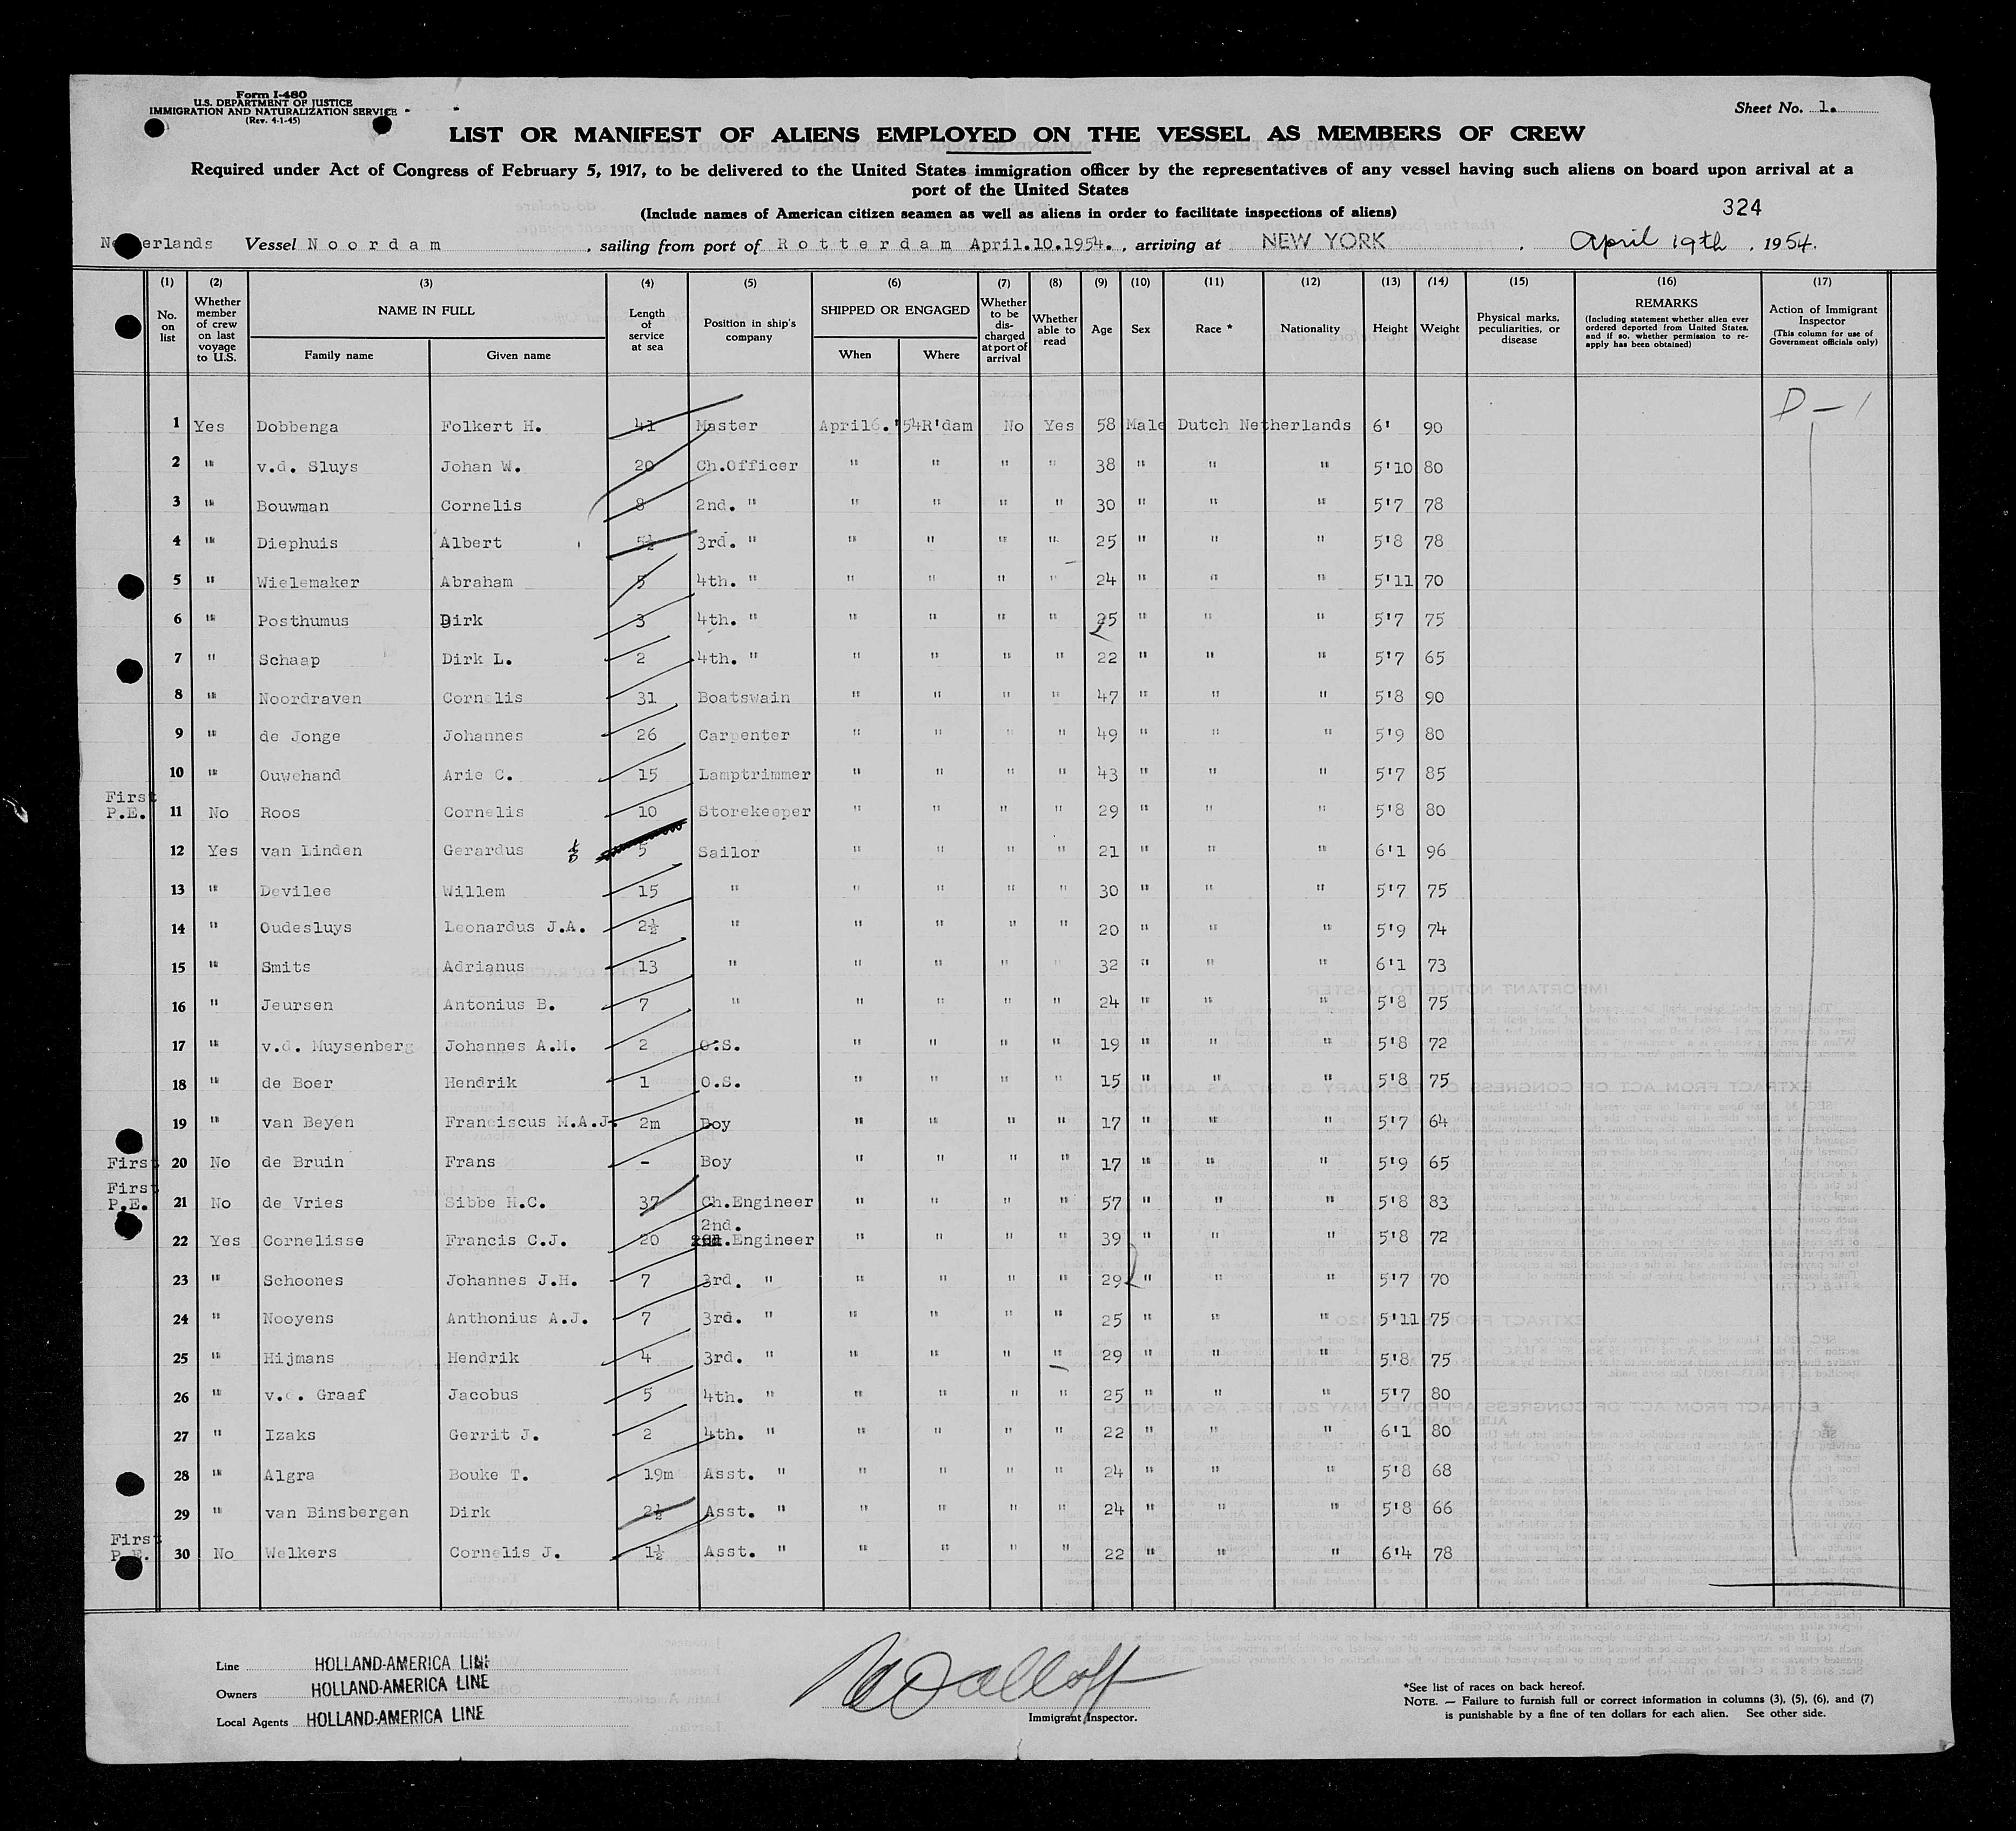 Form I-480
U.S. DEPARTMENT OF JUSTICE
IMMIGRATION AND NATURALIZATION SERVICE
(Rev. 4-1-45)
Sheet No. 1.
LIST OR MANIFEST OF ALIENS EMPLOYED ON THE VESSEL AS MEMBERS OF CREW
Required under Act of Congress of February 5, 1917, to be delivered to the United States immigration officer by the representatives of any vessel having such aliens on board upon arrival at a
port of the United States
(Include names of American citizen seamen as well as aliens in order to facilitate inspections of aliens)
324
Vessel Noordam, sailing from port of Rotterdam April.10.1954., arriving at NEW YORK, April 19th, 1954.
(1) (2) (3) (4) (5) (6) (7) (8) (9) (10) (11) (12) (13) (14) (15) (16) (17)
No. on list
Whether member of crew on last voyage to U.S.
NAME IN FULL
Family name Given name
Length of service at sea
Position in ship's company
SHIPPED OR ENGAGED
When Where
Whether to be discharged at port of arrival
Whether able to read
Age
Sex
Race *
Nationality
Height
Weight
Physical marks, peculiarities, or disease
REMARKS
(Including statement whether alien ever ordered deported from United States, and if so, whether permission to re-apply has been obtained)
Action of Immigrant Inspector
(This column for use of Government officials only)
D-1
1 Yes Dobbenga Folkert H. 41 Master April6.'54 R'dam No Yes 58 Male Dutch Netherlands 6' 90
2 " v.d. Sluys Johan W. 20 Ch.Officer " " " " 38 " " " 5'10 80
3 " Bouwman Cornelis 8 2nd. " " " " " 30 " " " 5'7 78
4 " Diephuis Albert 5½ 3rd. " " " " " 25 " " " 5'8 78
5 " Wielemaker Abraham 5 4th. " " " " " 24 " " " 5'11 70
6 " Posthumus Dirk 3 4th. " " " " " 25 " " " 5'7 75
7 " Schaap Dirk L. 2 4th. " " " " " 22 " " " 5'7 65
8 " Noordraven Cornelis 31 Boatswain " " " " 47 " " " 5'8 90
9 " de Jonge Johannes 26 Carpenter " " " " 49 " " " 5'9 80
10 " Ouwehand Arie C. 15 Lamptrimmer " " " " 43 " " " 5'7 85
First
P.E. 11 No Roos Cornelis 10 Storekeeper " " " " 29 " " " 5'8 80
12 Yes van Linden Gerardus 5 Sailor " " " " 21 " " " 6'1 96
13 " Devilee Willem 15 " " " " " 30 " " " 5'7 75
14 " Oudesluys Leonardus J.A. 2½ " " " " " 20 " " " 5'9 74
15 " Smits Adrianus 13 " " " " " 32 " " " 6'1 73
16 " Jeursen Antonius B. 7 " " " " " 24 " " " 5'8 75
17 " v.d. Muysenberg Johannes A.M. 2 O.S. " " " " 19 " " " 5'8 72
18 " de Boer Hendrik 1 O.S. " " " " 15 " " " 5'8 75
19 " van Beyen Franciscus M.A.J. 2m Boy " " " " 17 " " " 5'7 64
First 20 No de Bruin Frans - Boy " " " " 17 " " " 5'9 65
First
P.E. 21 No de Vries Sibbe H.C. 37 Ch.Engineer " " " " 57 " " " 5'8 83
2nd.
22 Yes Cornelisse Francis C.J. 20 Engineer " " " " 39 " " " 5'8 72
23 " Schoones Johannes J.H. 7 3rd. " " " " " 29 " " " 5'7 70
24 " Nooyens Anthonius A.J. 7 3rd. " " " " " 25 " " " 5'11 75
25 " Hijmans Hendrik 4 3rd. " " " " " 29 " " " 5'8 75
26 " v.d. Graaf Jacobus 5 4th. " " " " " 25 " " " 5'7 80
27 " Izaks Gerrit J. 2 4th. " " " " " 22 " " " 6'1 80
28 " Algra Bouke T. 19m Asst. " " " " " 24 " " " 5'8 68
29 " van Binsbergen Dirk 2½ Asst. " " " " " 24 " " " 5'8 66
First
P.E. 30 No Welkers Cornelis J. 1½ Asst. " " " " " 22 " " " 6'4 78
Line HOLLAND-AMERICA LINE
Owners HOLLAND-AMERICA LINE
Local Agents HOLLAND-AMERICA LINE
Immigrant Inspector.
*See list of races on back hereof.
NOTE. — Failure to furnish full or correct information in columns (3), (5), (6), and (7)
is punishable by a fine of ten dollars for each alien. See other side.